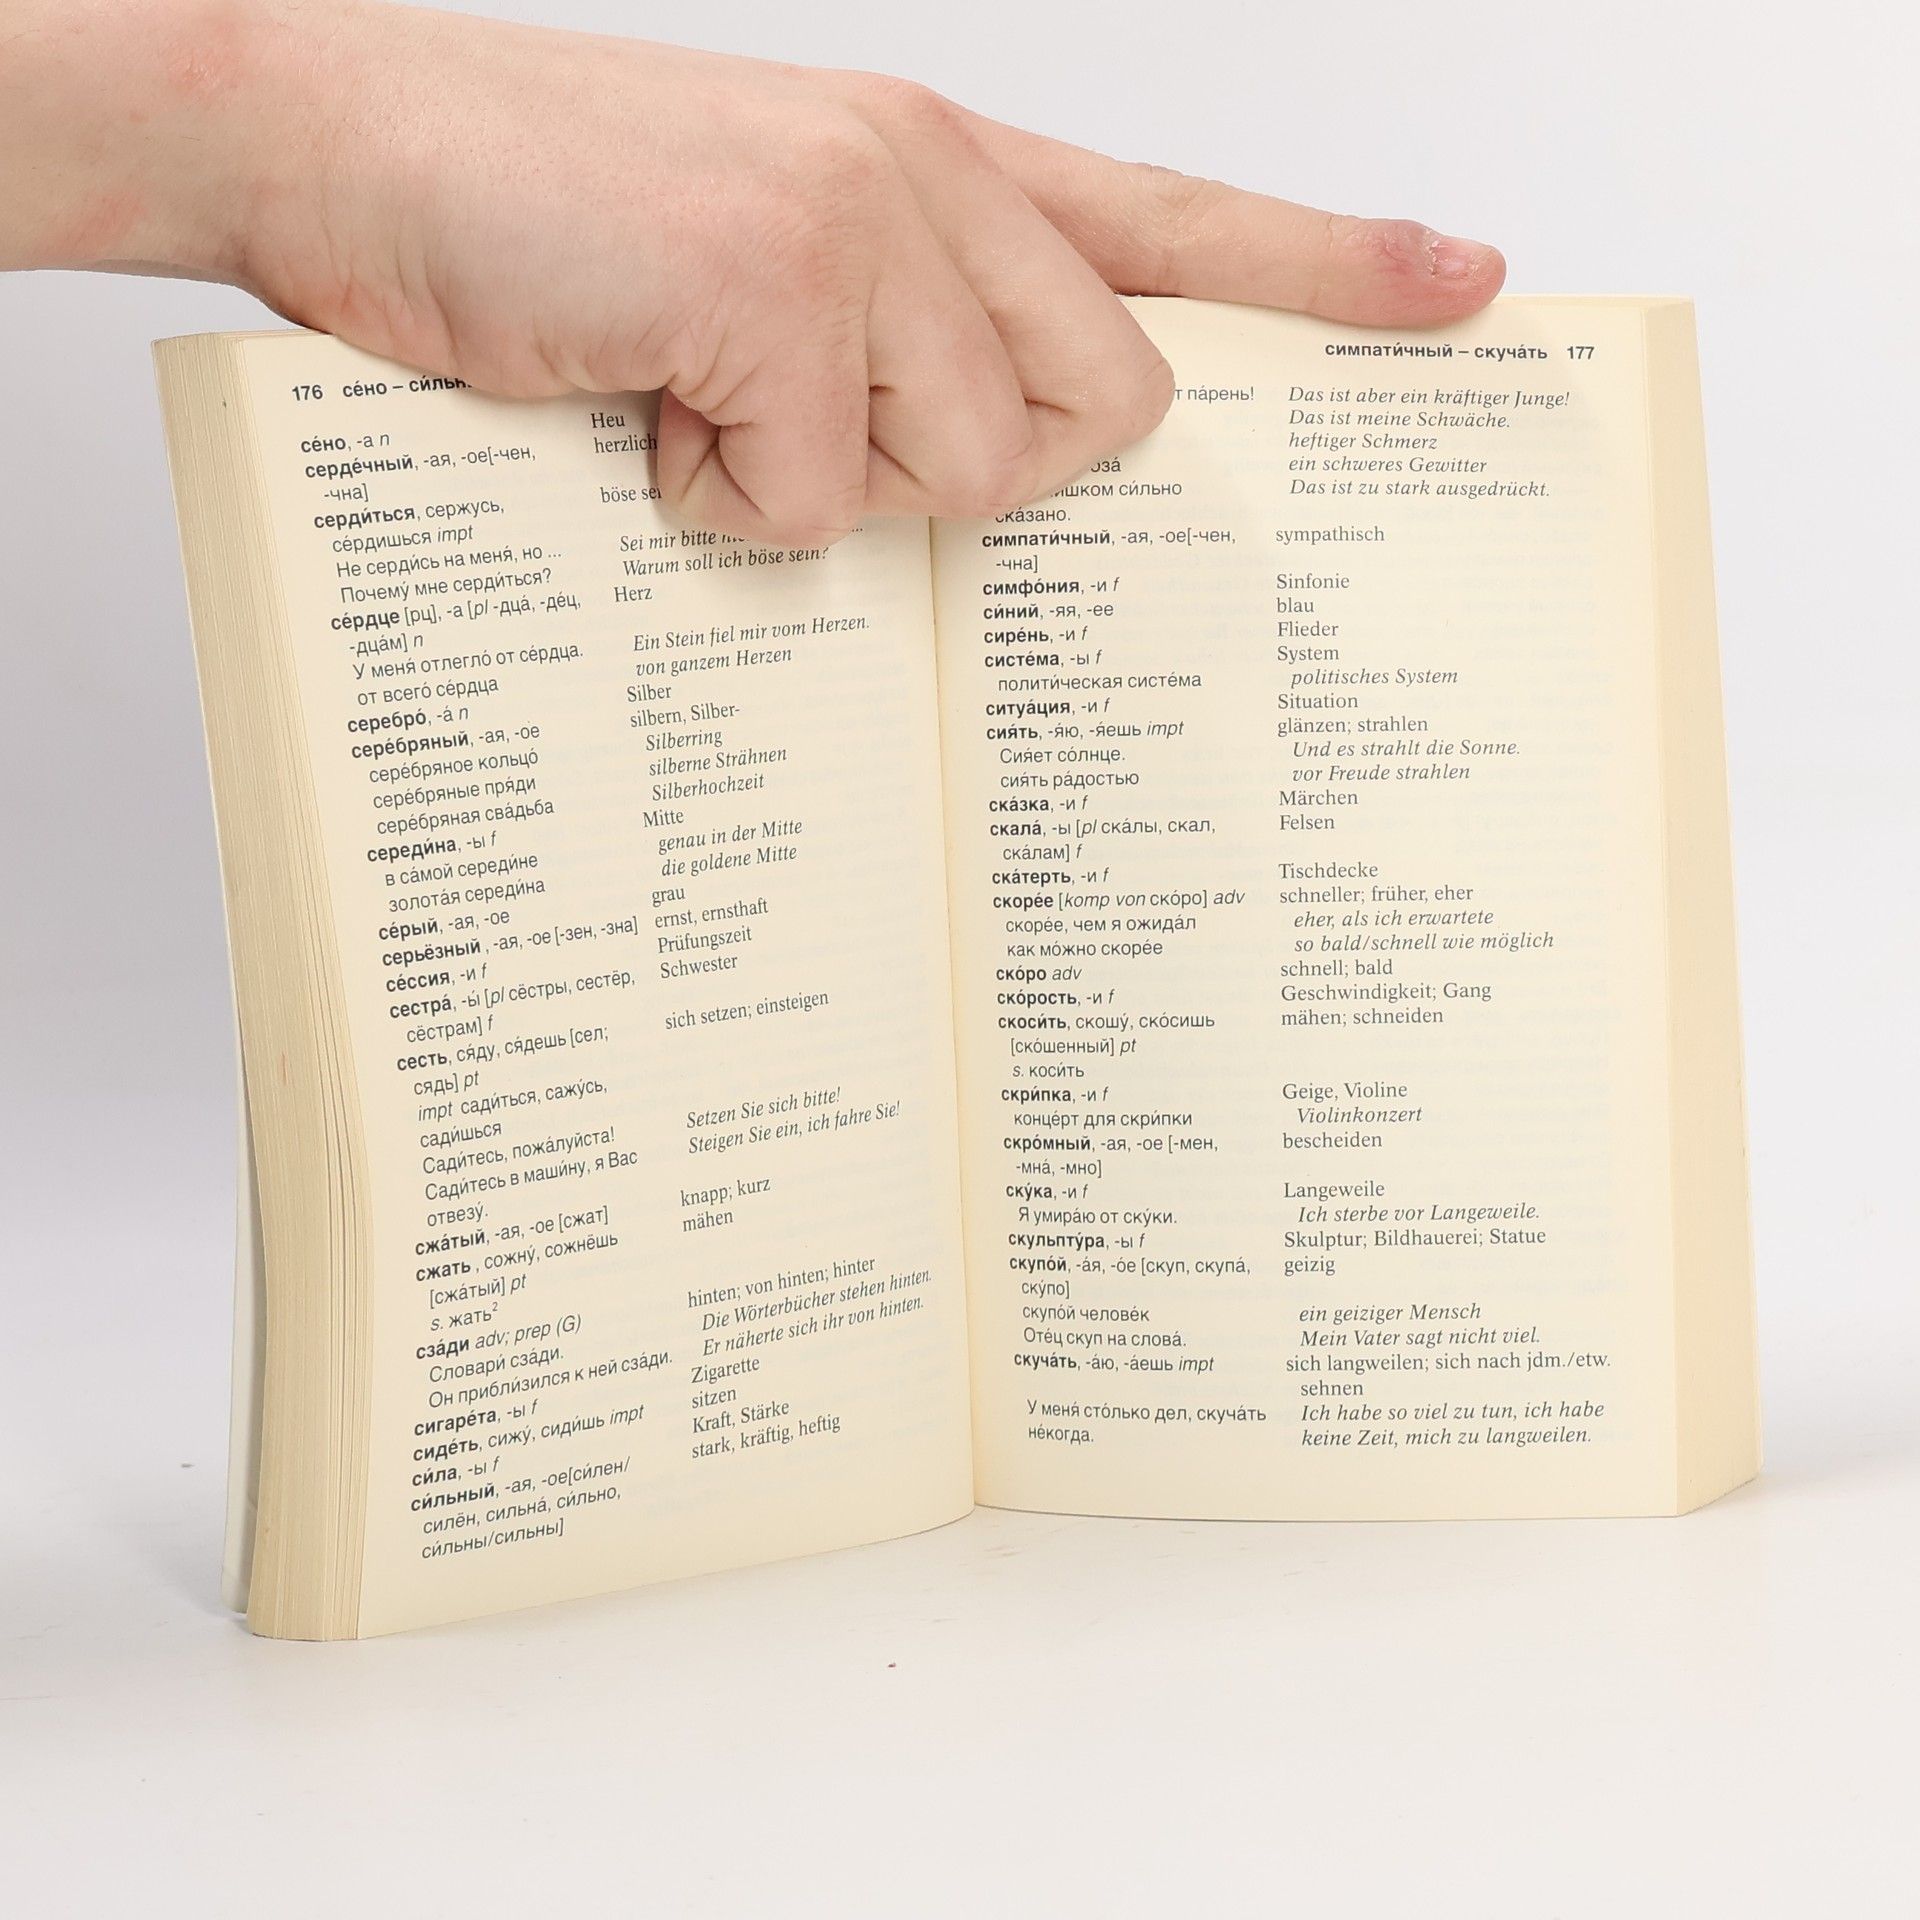 176 се́но –
се́но, -а n Heu
серде́чный, -ая, -ое[-чен, herzlich
-чна]
серди́ться, сержусь, böse
се́рдишься impt
Не серди́сь на меня́, но ... Sei mir bitte
Почему́ мне серди́ться? Warum soll ich böse sein?
се́рдце [рц], -а [pl -дца́, -де́ц, Herz
-дца́м] n
У меня́ отлегло́ от се́рдца. Ein Stein fiel mir vom Herzen.
от всего́ се́рдца von ganzem Herzen
серебро́, -а́ n Silber
сере́бряный, -ая, -ое silbern, Silber-
сере́бряное кольцо́ Silberring
сере́бряные пря́ди silberne Strähnen
сере́бряная сва́дьба Silberhochzeit
середи́на, -ы f Mitte
в са́мой середи́не genau in der Mitte
золота́я середи́на die goldene Mitte
се́рый, -ая, -ое grau
серьёзный, -ая, -ое [-зен, -зна] ernst, ernsthaft
се́ссия, -и f Prüfungszeit
сестра́, -ы́ [pl сёстры, сестёр, Schwester
сёстрам] f
сесть, ся́ду, ся́дешь [сел; sich setzen; einsteigen
сядь] pt
impt сади́ться, сажу́сь,
сади́шься
Сади́тесь, пожа́луйста! Setzen Sie sich bitte!
Сади́тесь в маши́ну, я Вас Steigen Sie ein, ich fahre Sie!
отвезу́.
сжа́тый, -ая, -ое [сжат] knapp; kurz
сжать, сожну́, сожнёшь mähen
[сжа́тый] pt
s. жать²
сза́ди adv; prep (G) hinten; von hinten; hinter
Словари́ сза́ди. Die Wörterbücher stehen hinten.
Он прибли́зился к ней сза́ди. Er näherte sich ihr von hinten.
сигаре́та, -ы f Zigarette
сиде́ть, сижу́, сиди́шь impt sitzen
си́ла, -ы f Kraft, Stärke
си́льный, -ая, -ое[си́лен/ stark, kräftig, heftig
силён, сильна́, си́льно,
си́льны/сильны]
симпати́чный – скуча́ть 177
па́рень! Das ist aber ein kräftiger Junge!
Das ist meine Schwäche.
heftiger Schmerz
ein schweres Gewitter
си́льно Das ist zu stark ausgedrückt.
ска́зано.
симпати́чный, -ая, -ое[-чен, sympathisch
-чна]
симфо́ния, -и f Sinfonie
си́ний, -яя, -ее blau
сире́нь, -и f Flieder
систе́ма, -ы f System
полити́ческая систе́ма politisches System
ситуа́ция, -и f Situation
сия́ть, -я́ю, -я́ешь impt glänzen; strahlen
Сия́ет со́лнце. Und es strahlt die Sonne.
сия́ть ра́достью vor Freude strahlen
ска́зка, -и f Märchen
скала́, -ы [pl ска́лы, скал, Felsen
ска́лам] f
ска́терть, -и f Tischdecke
скоре́е [komp von ско́ро] adv schneller; früher, eher
скоре́е, чем я ожида́л eher, als ich erwartete
как мо́жно скоре́е so bald/schnell wie möglich
ско́ро adv schnell; bald
ско́рость, -и f Geschwindigkeit; Gang
скоси́ть, скошу́, ско́сишь mähen; schneiden
[ско́шенный] pt
s. коси́ть
скри́пка, -и f Geige, Violine
конце́рт для скри́пки Violinkonzert
скро́мный, -ая, -ое [-мен, bescheiden
-мна́, -мно]
ску́ка, -и f Langeweile
Я умира́ю от ску́ки. Ich sterbe vor Langeweile.
скульпту́ра, -ы f Skulptur; Bildhauerei; Statue
скупо́й, -а́я, -о́е [скуп, скупа́, geizig
ску́по]
скупо́й челове́к ein geiziger Mensch
Оте́ц скуп на слова́. Mein Vater sagt nicht viel.
скуча́ть, -а́ю, -а́ешь impt sich langweilen; sich nach jdm./etw.
sehnen
У меня́ сто́лько дел, скуча́ть Ich habe so viel zu tun, ich habe
не́когда. keine Zeit, mich zu langweilen.